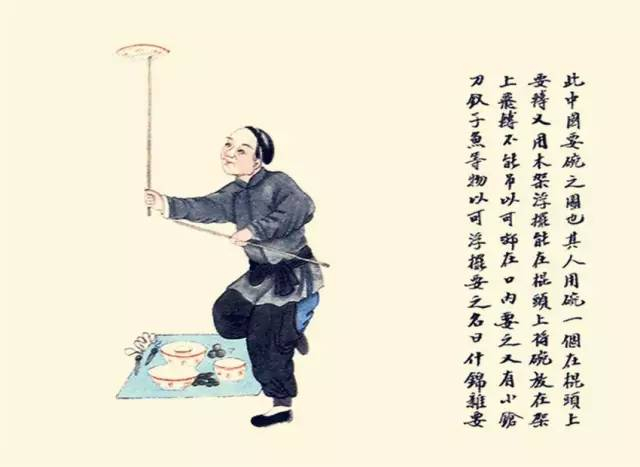 此中國耍碗之圖也其人用碗一個在棍頭上
耍轉又用木架浮擺能在棍頭上將碗放在架
上飛轉不能吊以可卸在口內耍之又有小鎗
刀釵子魚等物以可浮擺耍之名曰什錦雜耍